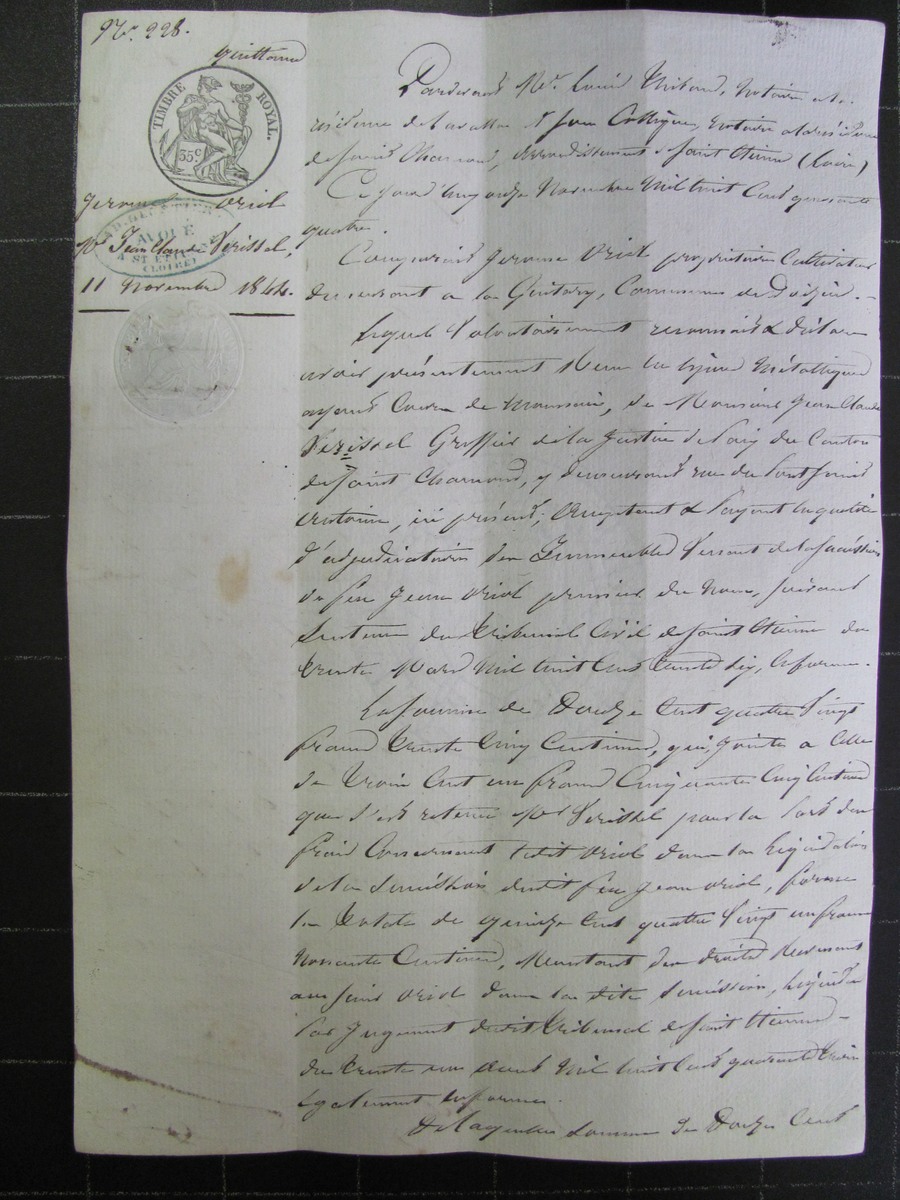 No. 228.
quittance
TIMBRE ROYAL.
35c
Jerome Oriol
Mr. Jean Claude Serissel,
AVOUÉ
A ST ETIENNE
(LOIRE)
11 Novembre 1844.
Pardevant Me. Louis Mitaud, Notaire a la
résidence de Lavalla & Jean Collignon, Notaire a la résidence
de Saint Chamond, arrondissement de Saint Etienne (Loire)
Ce jourd'huy onze Novembre Mil huit Cent quarante
quatre.
Comparait Jerome Oriol propriétaire Cultivateur
demeurant a la Commune de Doizieu. -
Lequel Volontairement reconnait & déclare
avoir présentement Reçu en espèces Métalliques
ayant Cours de Monnaie, de Monsieur Jean Claude
Serissel Greffier de la Justice de Paix du Canton
de Saint Chamond, y demeurant rue du Pont Saint
Antoine, ici présent, Acceptant & Payant en qualité
d'adjudicataire des Immeubles Venant de la Succession
de feu Jean Oriol premier du Nom, suivant
Sentence du Tribunal Civil de Saint Etienne du
trente Mars Mil huit Cent trente six, en forme.
La Somme de Douze Cent quatre Vingt
francs trente Cinq Centimes, qui, Jointe a Celle
de trois Cent un francs Cinquante Cinq Centimes
que s'est retenu Mr Serissel pour la Part des
frais Concernant ledit Oriol dans la Liquidation
de la Succession dudit feu Jean Oriol, forme
le totale de quinze Cent quatre Vingt un francs
Nonante Centimes, Montant des droits Revenant
au sieur Oriol dans la dite Succession, Liquidée
Par Jugement dudit tribunal de Saint Etienne -
du trente un Mil huit Cent quarante trois
Egalement en forme.
De laquelle Somme de Douze Cent